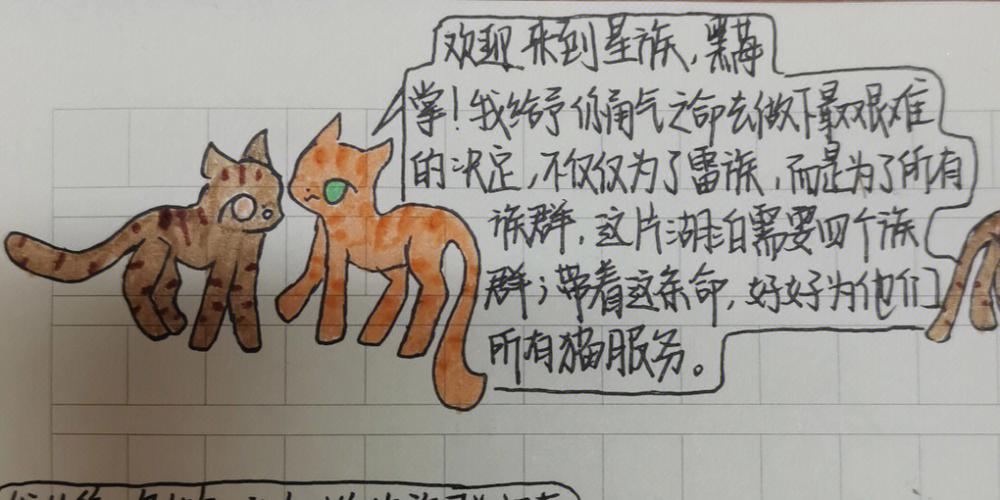 欢迎来到星族，黑莓
掌！我给予你勇气之命去做下最艰难
的决定，不仅仅为了雷族，而是为了所有
族群，这片湖泊需要四个族
群；带着这条命，好好为他们
所有猫服务。